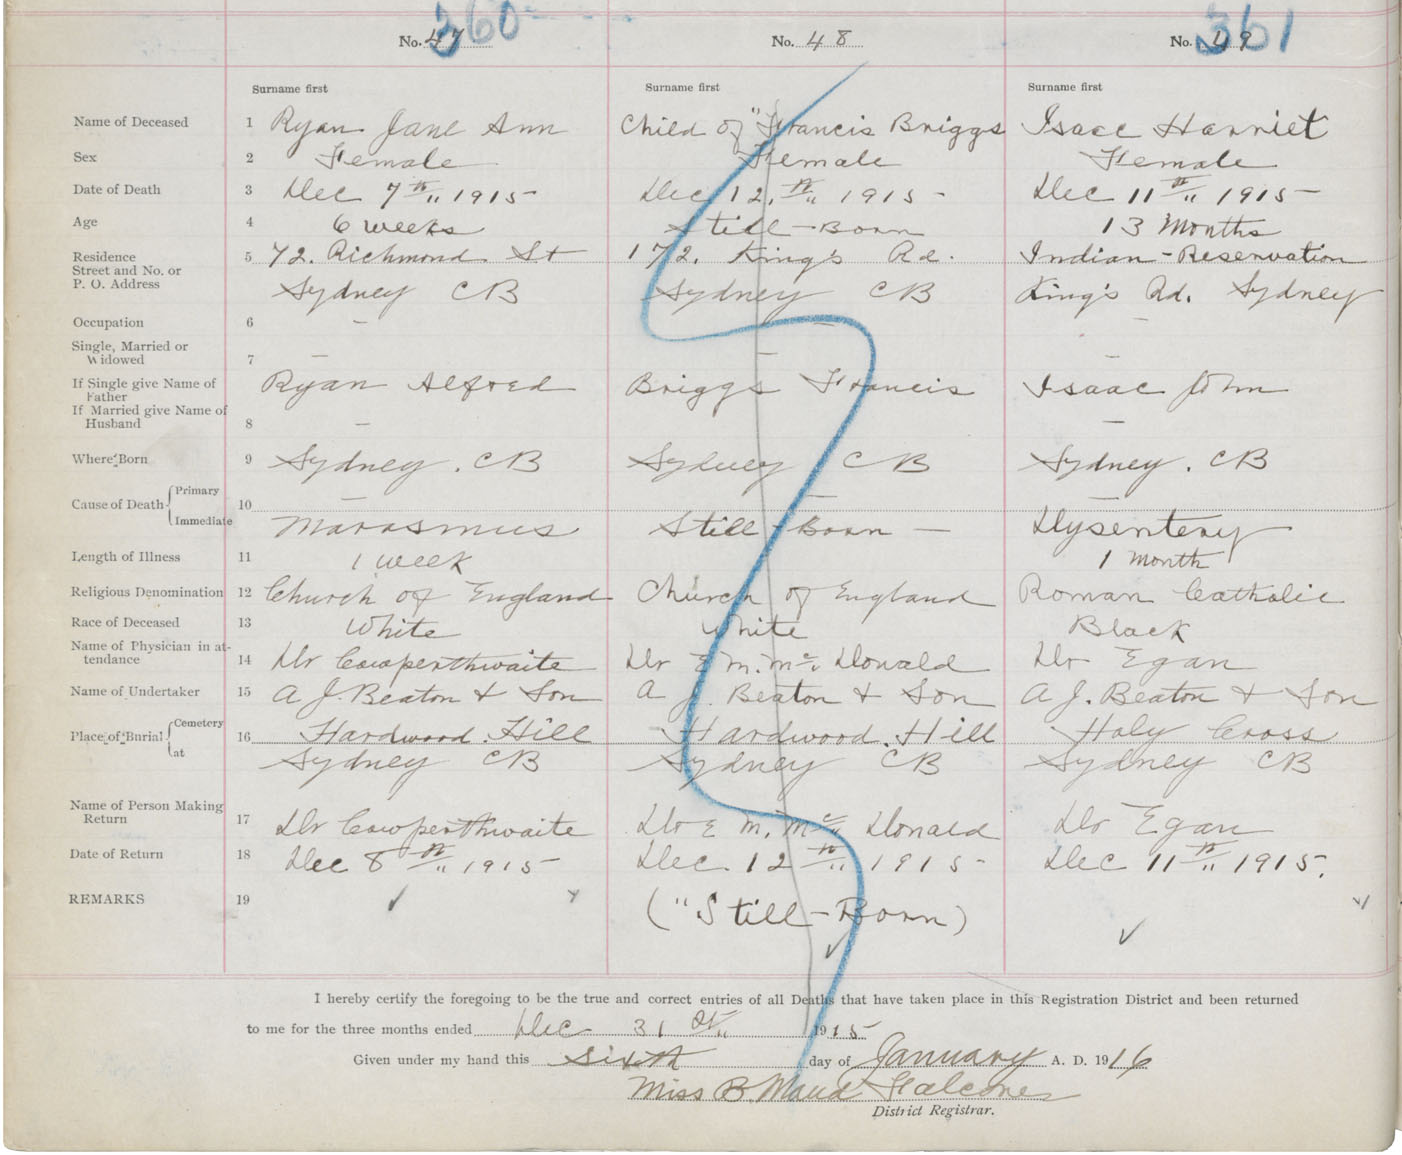 360 361
No. 47 No. 48 No. 49
Surname first Surname first Surname first
Name of Deceased 1 Ryan Jane Ann Child of "Francis Briggs Isaac Harriet
Sex 2 Female Female Female
Date of Death 3 Dec 7th 1915 Dec 12th 1915 Dec 11th 1915
Age 4 6 weeks Still-Born 13 Months
Residence 5 72. Richmond St 172. King's Rd. Indian-Reservation
Street and No. or
P. O. Address Sydney CB Sydney CB King's Rd. Sydney
Occupation 6 – – –
Single, Married or
Widowed 7 – – –
If Single give Name of Ryan Alfred Briggs Francis Isaac John
Father
If Married give Name of
Husband 8 – –
Where Born 9 Sydney. CB Sydney CB Sydney. CB
Cause of Death Primary 10 – – –
Immediate Marasmus Still-Born – Dysentery
Length of Illness 11 1 week 1 month
Religious Denomination 12 Church of England Church of England Roman Catholic
Race of Deceased 13 White White Black
Name of Physician in at-
tendance 14 Dr Cowperthwaite Dr E M. Mc Donald Dr Egan
Name of Undertaker 15 A J. Beaton & Son A J. Beaton & Son A J. Beaton & Son
Place of Burial Cemetery 16 Hardwood. Hill Hardwood. Hill Holy Cross
at Sydney CB Sydney CB Sydney CB
Name of Person Making
Return 17 Dr Cowperthwaite Dr E M. Mc Donald Dr Egan
Date of Return 18 Dec 8th 1915 Dec. 12th 1915 Dec 11th 1915.
REMARKS 19 ("Still-Born)
I hereby certify the foregoing to be the true and correct entries of all Deaths that have taken place in this Registration District and been returned
to me for the three months ended Dec 31st 1915
Given under my hand this Sixth day of January A. D. 1916
Miss B. Maud Falconer
District Registrar.